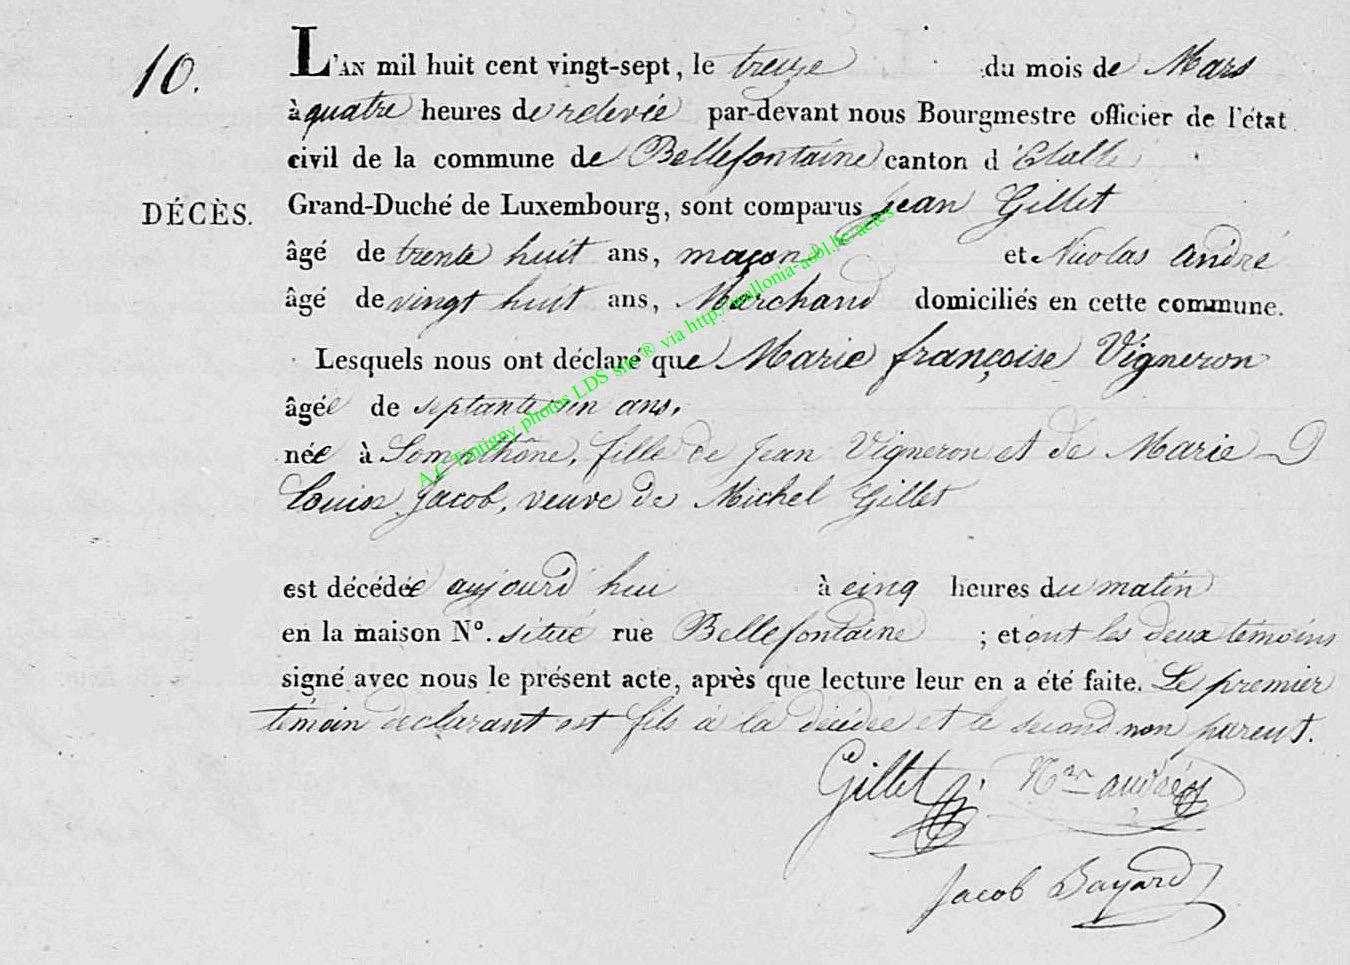 10.
L'AN mil huit cent vingt-sept, le treize du mois de Mars
à quatre heures de relevée par-devant nous Bourgmestre officier de l'état
civil de la commune de Bellefontaine canton d'Etalle
DÉCÈS.
Grand-Duché de Luxembourg, sont comparus Jean Gillet
âgé de trente huit ans, maçon et Nicolas André
âgé de vingt huit ans, Marchand domiciliés en cette commune.
Lesquels nous ont déclaré que Marie françoise Vigneron
âgée de septante un ans.
née à Somethône, fille de Jean Vigneron et de Marie
Louise Jacob, veuve de Michel Gillet
est décédée aujourd'hui à cinq heures du matin
en la maison Nº. situé rue Bellefontaine ; et ont les deux témoins
signé avec nous le présent acte, après que lecture leur en a été faite. Le premier
témoin déclarant est fils à la décédée et le second non parent.
Gillet j. Nas andréy
Jacob Bayard
A.C. Tintigny photos LDS site® via http://wallonia-asbl.be/actes